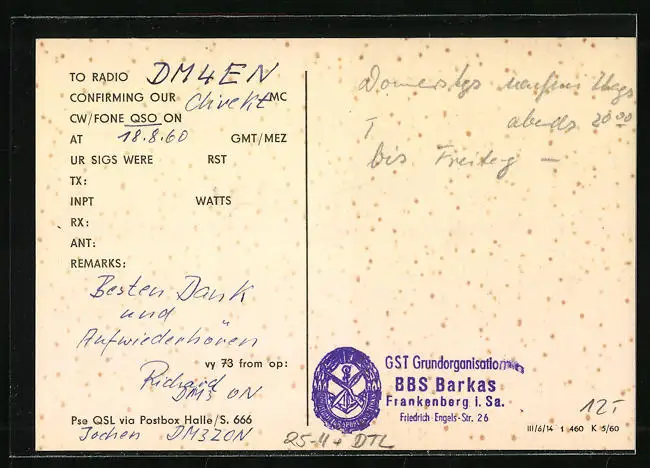 TO RADIO DM4EN
CONFIRMING OUR direkt MC
CW/FONE QSO ON
AT 18.8.60 GMT/MEZ
UR SIGS WERE RST
TX:
INPT WATTS
RX:
ANT:
REMARKS:
Besten Dank
und
Aufwiederhören
vy 73 from op:
Richard
DM3 ON
Pse QSL via Postbox Halle/S. 666
Jochen DM3ZON
Donnerstgs
I abends 20 00
bis Freitag —
GST Grundorganisation
BBS Barkas
Frankenberg i. Sa.
Friedrich-Engels-Str. 26
12,-
III/6/14 1 460 K 5/60